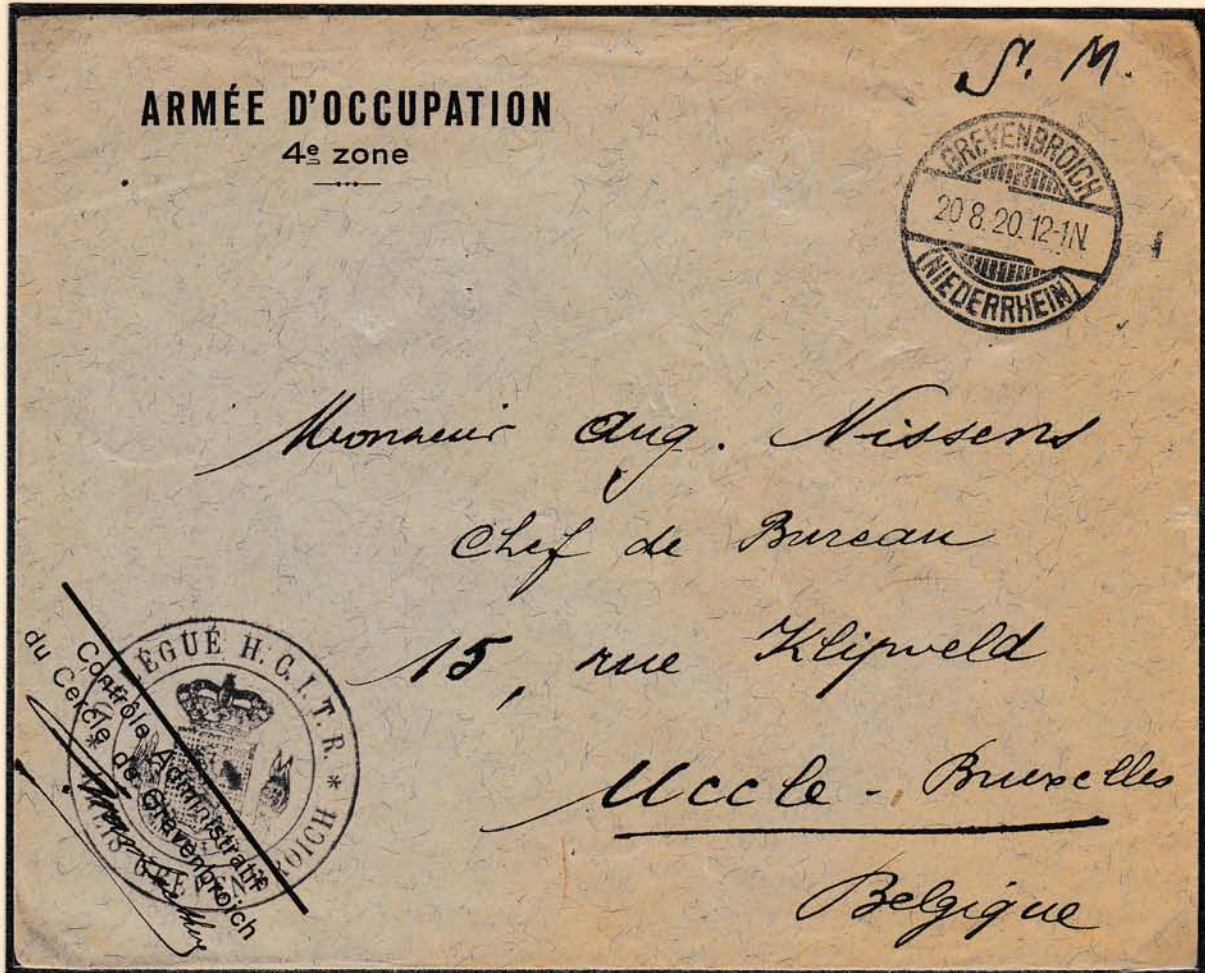 S. M.
ARMÉE D'OCCUPATION
4e zone
GREVENBROICH
20 8. 20. 12-1N.
(NIEDERRHEIN)
Monsieur Aug. Nissens
Chef de Bureau
15, rue Klipveld
Uccle - Bruxelles
Belgique
Contrôle Administratif
du Cercle de Grevenbroich
DÉLÉGUÉ H. C. I. T. R.